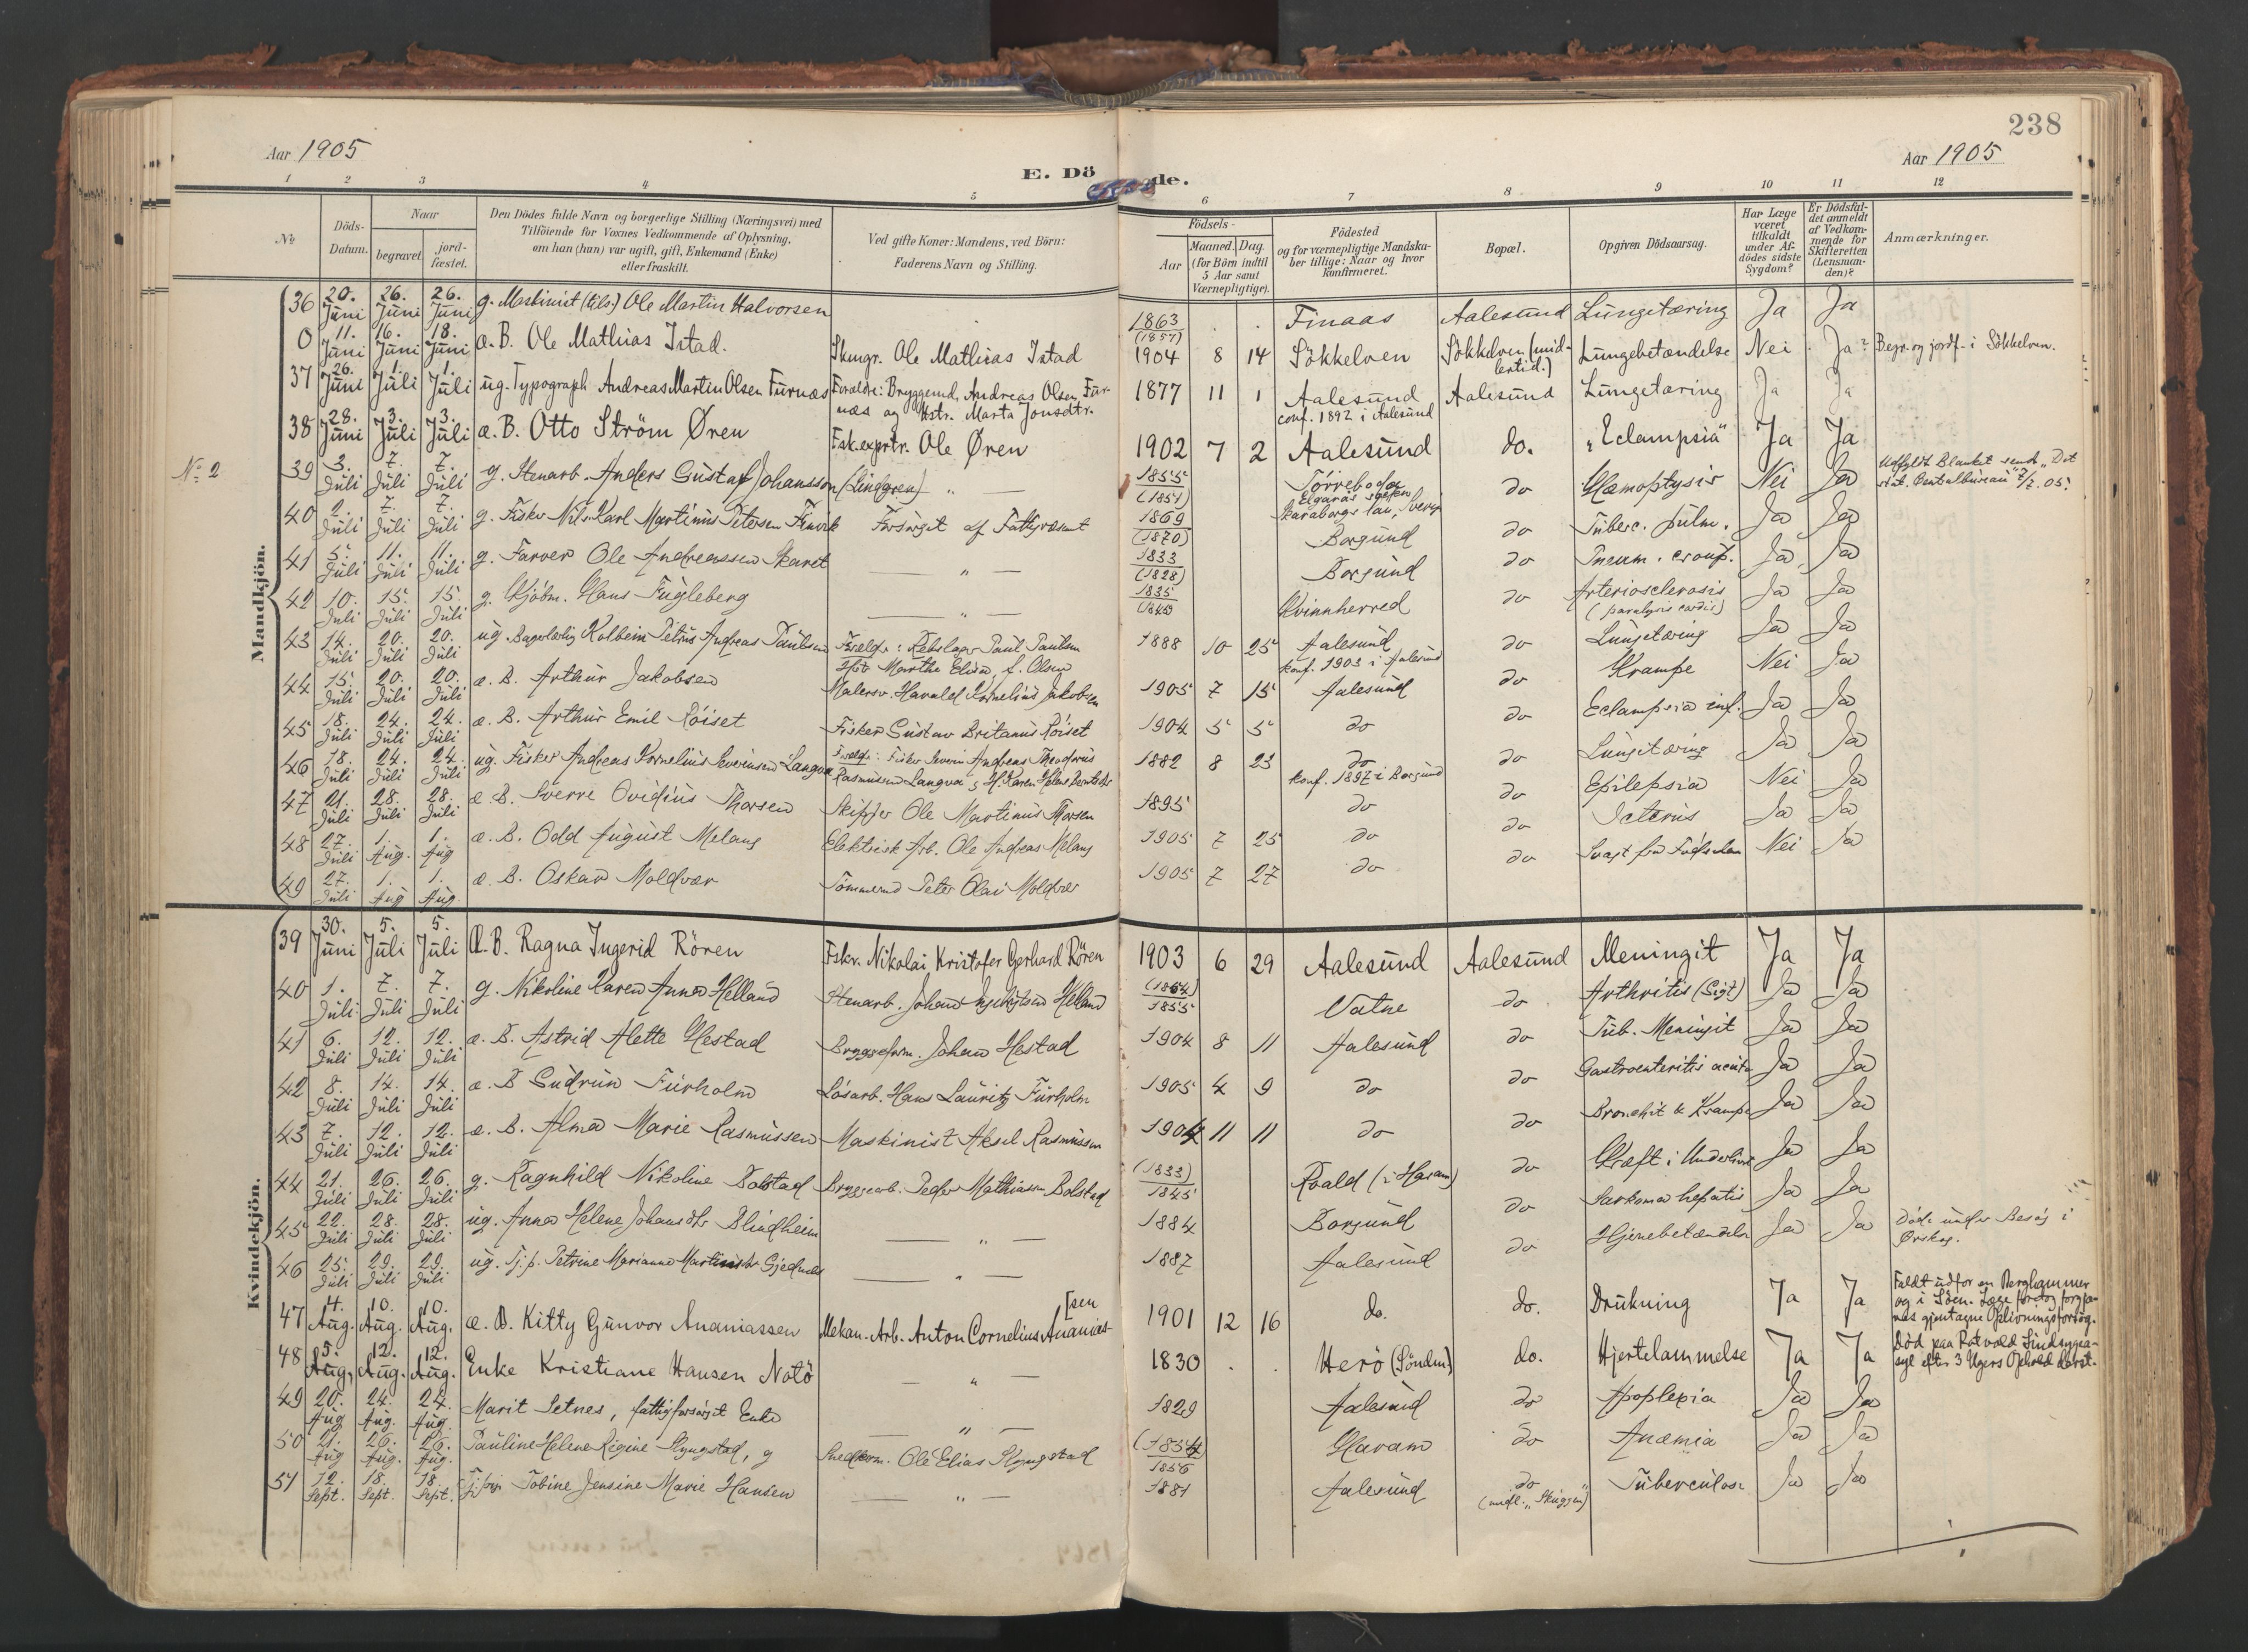 238
Aar 1905
Aar 1905
E. Dö de.
1 2 3 4 5 6 7 8 9 10 11 12
№
Döds-Datum.
Naar
begravet.
jord-fæstet.
Den Dödes fulde Navn og borgerlige Stilling (Næringsvei) med
Tilföiende for Voxnes Vedkommende af Oplysning,
om han (hun) var ugift, gift, Enkemand (Enke)
eller fraskilt.
Ved gifte Koner: Mandens, ved Börn:
Faderens Navn og Stilling.
Födsels-
Aar
Maaned. Dag.
(for Börn indtil
5 Aar samt
Værnepligtige).
Födested
og for værnepligtige Mandska-
ber tillige: Naar og hvor
konfirmeret.
Bopæl.
Opgiven Dödsaarsag.
Har Læge
været
tilkaldt
under Af-
dödes sidste
Sygdom?
Er Dödsfal-
det anmeldt
af Vedkom-
mende for
Skifteretten
(Lensman-
den)?
Anmærkninger.
Mandkjön.
36 20. Juni 26. Juni 26. Juni g. Maskinist (tils.) Ole Martin Halvorsen 1863 (1857) Finaas Aalesund Lungetæring Ja Ja
0 11. Juni 16. Juni 18. Juni æ. B. Ole Mathias Istad. Skmgr. Ole Mathias Istad 1904 8 14 Sökkelven Sökkelven (midlertid.) Lungebetændelse Nei Ja? Begr. og jordf. i Sökkelven.
37 26. Juni 1. Juli 1. Juli ug. Typograph Andreas Martin Olsen Furnæs Foraldre: Bryggemd. Andreas Olsen Furnæs og Hstr. Marta Jonsdtr. 1877 11 1 Aalesund conf. 1892 i Aalesund Aalesund Lungetæring Ja Ja
38 28. Juni 3. Juli 3. Juli æ. B. Otto Ström Øren Fsk.exprtr. Ole Øren 1902 7 2 Aalesund do. "Eclampsia" Ja Ja
No. 2 39 3. Juli 7. Juli 7. Juli g. Stenarb. Anders Gustaf Johansson (Lindgren) " 1855 (1851) Törreboda Skaraborgs län, do Hæmoptysis Nei Ja Udfyldt Blanket sendt "Det stat. Centralbureau" 7/7. 05.
40 2. Juli 7. Juli 7. Juli g. Fisker Nils Karl Martinus Petersen Forsörget af Fattigvæsnet 1869 (1870) Borgund do Tuberc. pulm. Ja Ja
41 5. Juli 11. Juli 11. Juli g. Farver Ole Andreassen Skaret " 1833 (1828) Borgund do Pneum. croup. Ja Ja
42 10. Juli 15. Juli 15. Juli g. Kjöbm. Hans Fugleberg " 1835 Kvinnherred do Arteriosclerosis (paralysis cordis) Ja Ja
43 14. Juli 20. Juli 20. Juli ug. Bagerlærling Kolbein Petrus Andreas Paulsen Foreldre: Rebslager Paul Paulsen Hst. Marthe Elisa f. Olsen 1888 10 25 Aalesund konf. 1903 i Aalesund do Lungetæring Ja Ja
44 15. Juli 20. Juli 20. Juli æ. B. Arthur Jakobsen Malersv. Harald Kornelius Jakobsen 1905 7 15 Aalesund do Krampe Nei Ja
45 18. Juli 24. Juli 24. Juli æ. B. Arthur Emil Röiset Fisker Gustav Britanus Röiset 1904 5 5 do do Eclampsia inf. Ja Ja
46 18. Juli 24. Juli 24. Juli ug. Fisker Andreas Kornelius Severinsen Langva Foreldr: Fisker Severin Andreas Theodorus Rasmussen Langva 1882 8 23 do konf. 1897 i Borgund do Lungetæring Ja Ja
47 21. Juli 28. Juli 28. Juli æ. B. Sverre Ovidius Thorsen Skipper Ole Martinus Thorsen 1895 do do Epilepsia Nei Ja
48 27. Juli 1. Aug. 1. Aug æ. B. Odd August Melang Elektrisk Arb. Ole Andreas Melang 1905 7 25 do do Icterus Ja Ja
49 27. Juli 1. Aug 1. Aug. æ. B. Oskar Moldvær Tömmermd Peter Olai Moldvær 1905 7 27 do do Svagt fra Födselen Nei Ja
Kvindekjön.
39 30. Juni 5. Juli 5. Juli Æ. B. Ragna Ingerid Rören Fskr. Nikolai Kristofer Gerhard Rören 1903 6 29 Aalesund Aalesund Meningit Ja Ja
40 1. Juli 7. Juli 7. Juli g. Nikoline Karen Anna Helland Stenarb. Johan Helland (1864) 1855 Vatne do Arthritis (Gigt) Ja Ja
41 6. Juli 12. Juli 12. Juli æ. B. Astrid Alette Hestad Bryggeform. Johan Hestad 1904 8 11 Aalesund do Tub. Meningit Ja Ja
42 8. Juli 14. Juli 14. Juli æ. B Gudrun Furholm Lösarb. Hans Lauritz Furholm 1905 4 9 do do Gastroenteritis acuta Ja Ja
43 7. Juli 12. Juli 12. Juli æ. B. Alma Marie Rasmussen Maskinist Aksel Rasmussen 1904 11 11 do do Bronchit & Krampe Ja Ja
44 21. Juli 26. Juli 26. Juli g. Ragnhild Nikoline Bolstad Bryggearb. Peder Mathiassen Bolstad (1833) 1845 Roald (i Haram) do Kræft i Underlivet Ja Ja
45 22. Juli 28. Juli 28. Juli ug. Anna Helene Johansdtr Blindheim " 1884 Borgund do Sarkoma hepatis Ja Ja
46 25. Juli 29. Juli 29. Juli ug. Tj.p. Petrine Marianne Martinusdtr Gjednes " 1887 Aalesund do Hjernebetændelse Ja Ja Döde under Besög i Ørskog.
47 4. Aug. 10. Aug. 10. Aug. æ. B. Kitty Gunvor Ananiassen Mekan. Arb. Anton Cornelius Ananiassen 1901 12 16 do. do. Drukning Ja Ja Faldt udfor en Berghammer og i Söen. Læge foretog forgjæves gjentagne Oplivningsforsög.
48 5. Aug. 12. Aug. 12. Aug. Enke Kristiane Hansen Notö " 1830 Herö (Söndm) do. Hjertelammelse Ja Ja Död paa Rotvold Sindsygeasyl efter 3 Ugers Ophold derst.
49 20. Aug 24. Aug. 24. Aug. Marit Setnes, fattigforsörget Enke " 1829 Aalesund do Apoplexia Ja Ja
50 21. Aug 26. Aug. 26. Aug. Pauline Helene Regine Slyngstad, g Snedkerm. Ole Elias Slyngstad (1854) 1856 Haram do Anæmia Ja Ja
51 12. Sept. 18. Sept. 18. Sept. Tobine Jensine Marie Hansen " 1881 Aalesund do (midl. "Skuggen") Tuberculose Ja Ja